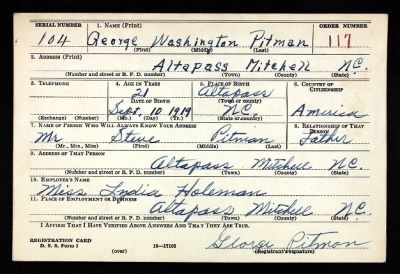 SERIAL NUMBER 1. NAME (Print) ORDER NUMBER
104 George Washington Pitman 117
(First) (Middle) (Last)
2. ADDRESS (Print)
Altapass Mitchell N.C.
(Number and street or R. F. D. number) (Town) (County) (State)
3. TELEPHONE 4. AGE IN YEARS 5. PLACE OF BIRTH 6. COUNTRY OF CITIZENSHIP
21 Altapass
DATE OF BIRTH (Town or county)
Sept. 10 1919 N.C. America
(Exchange) (Number) (Mo.) (Day) (Yr.) (State or country)
7. NAME OF PERSON WHO WILL ALWAYS KNOW YOUR ADDRESS 8. RELATIONSHIP OF THAT PERSON
Mr. Steve Pitman Father
(Mr., Mrs., Miss) (First) (Middle) (Last)
9. ADDRESS OF THAT PERSON
Altapass Mitchell N.C.
(Number and street or R. F. D. number) (Town) (County) (State)
10. EMPLOYER'S NAME
Miss India Holeman
11. PLACE OF EMPLOYMENT OR BUSINESS
Altapass Mitchell N.C.
(Number and street or R. F. D. number) (Town) (County) (State)
I AFFIRM THAT I HAVE VERIFIED ABOVE ANSWERS AND THAT THEY ARE TRUE.
REGISTRATION CARD
D. S. S. Form 1 (over) 16—17105 George Pitman
(Registrant's signature)